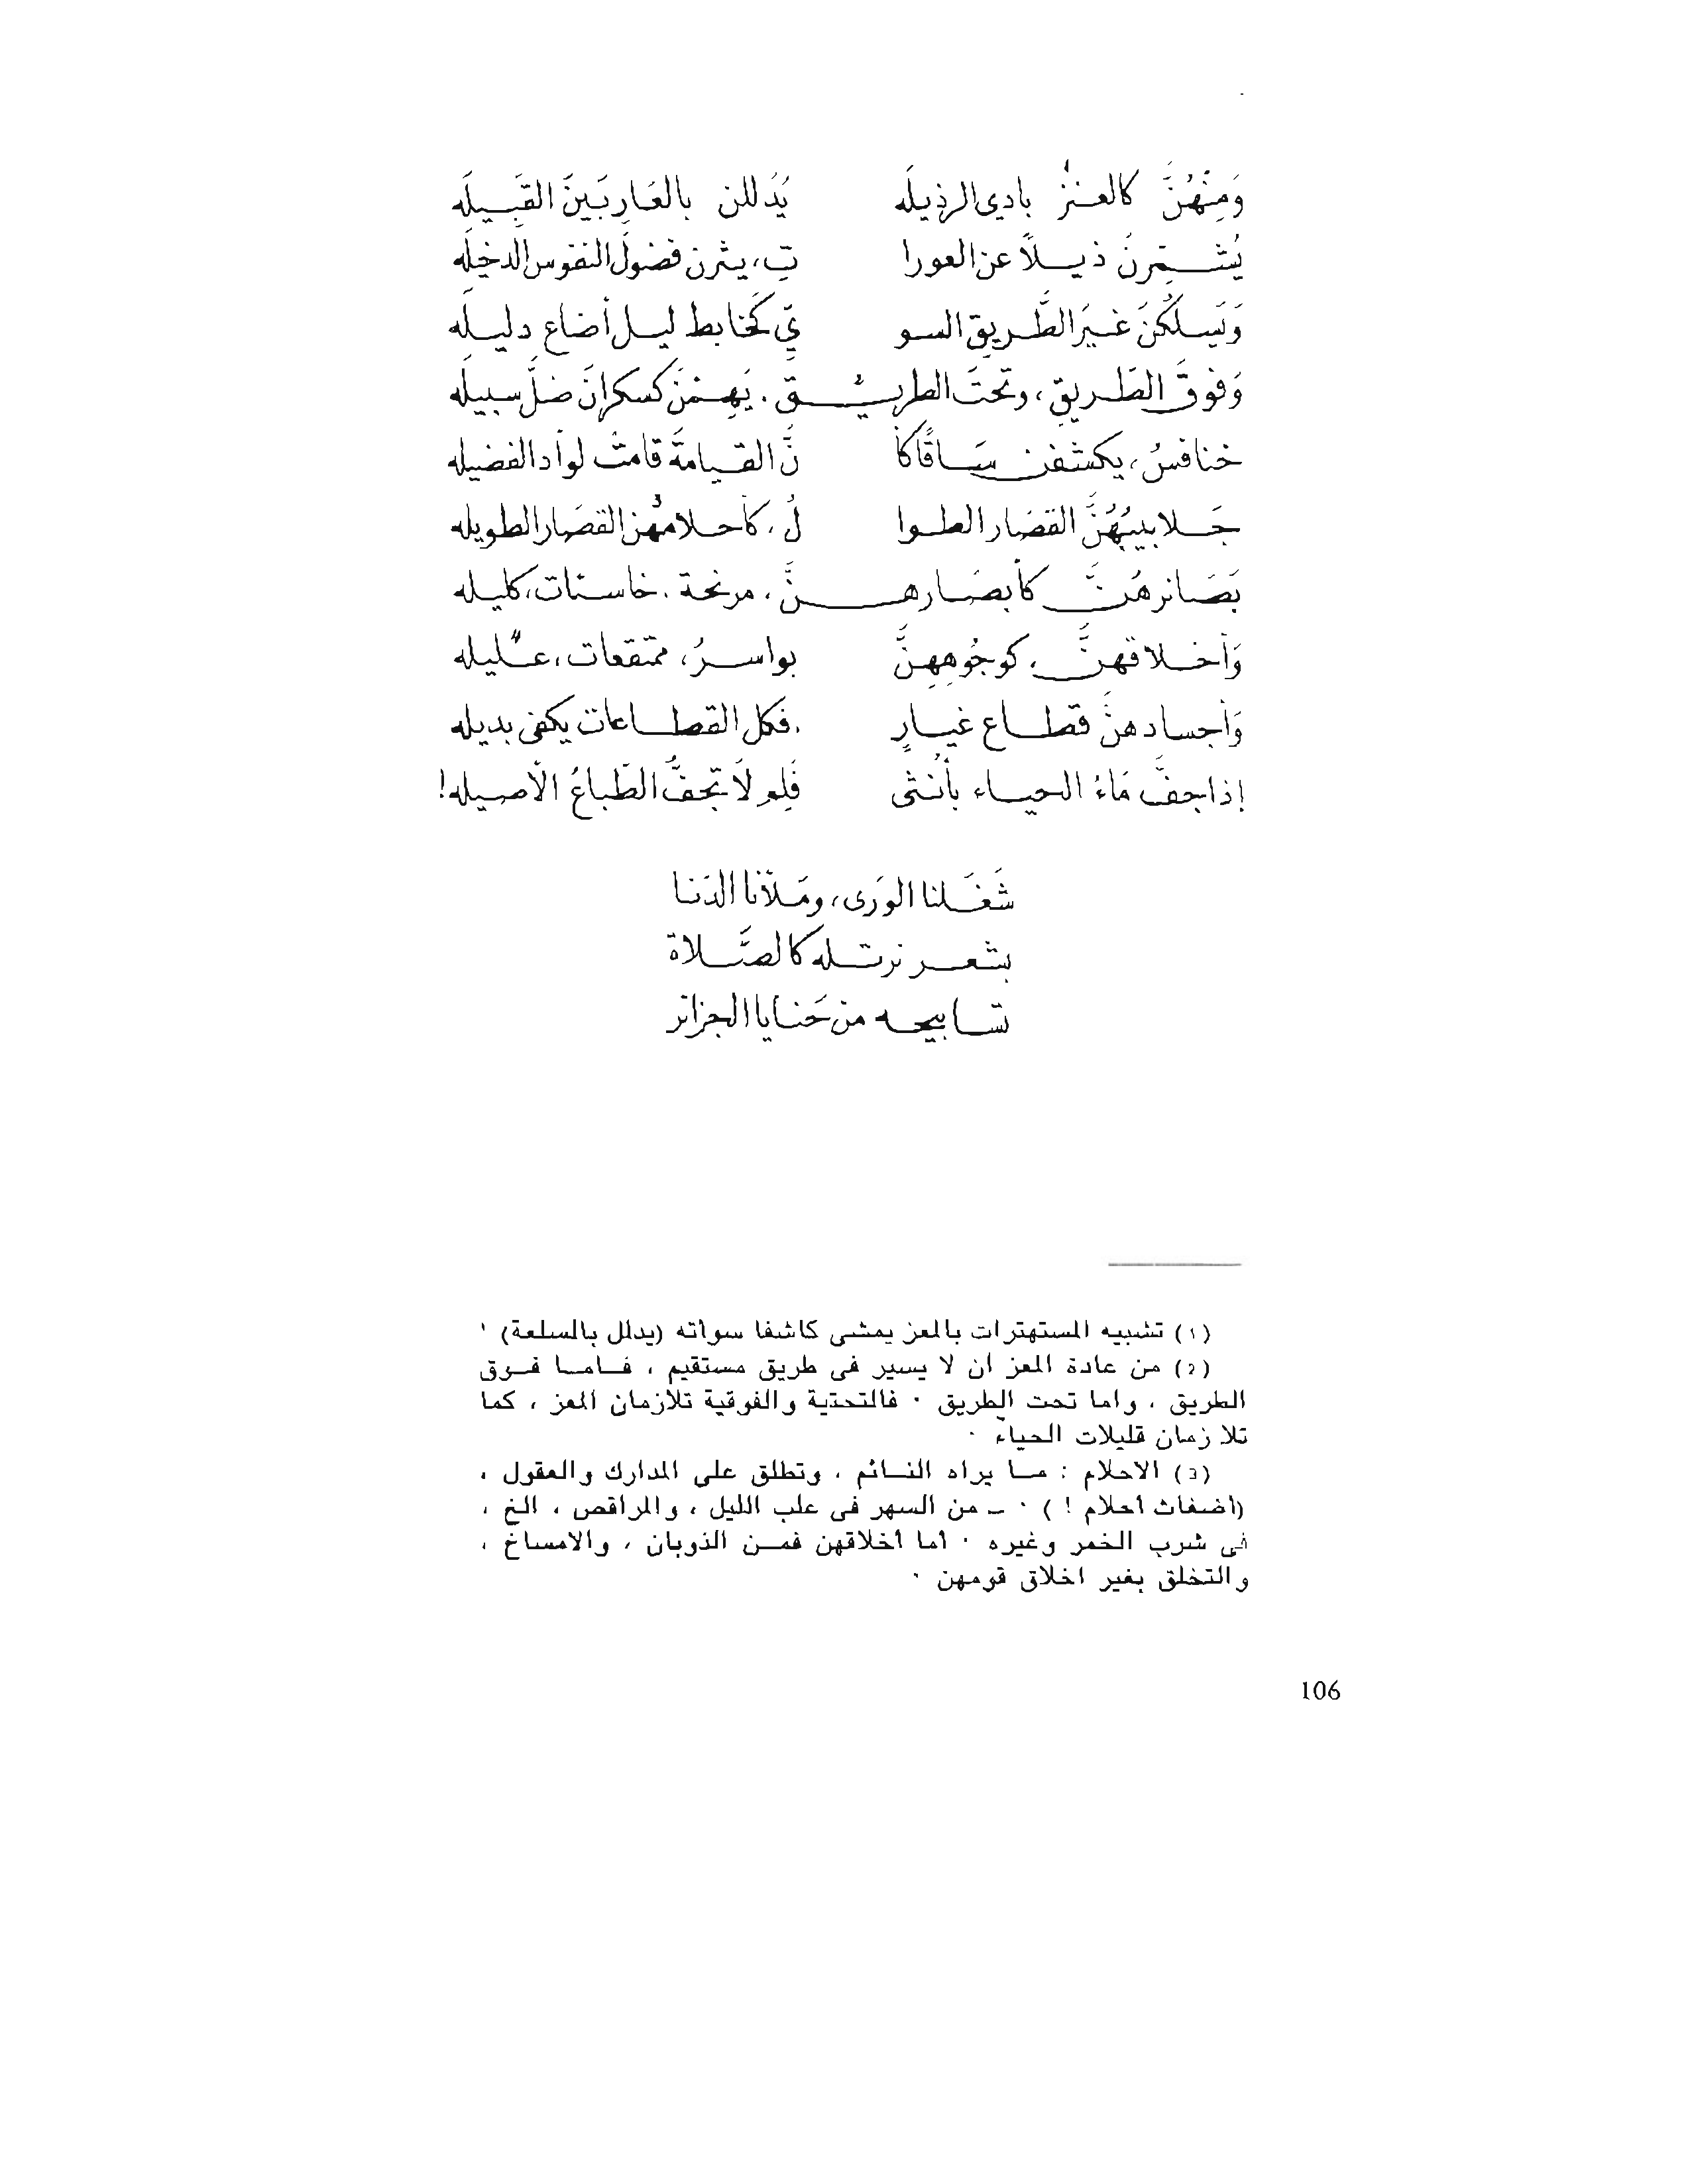 وَمِنْهُنَّ كالعنز¹ بادى الرذيلَه يُدَللن بالعَارِ بَينَ القَبِيلَه
يُشمِّرنَ ذيلاً عن العورا تِ، يثرن فضولَ النفوس الدخيلَه
وَيَسلكُنَ غيرَ الطَّريقِ السو يِّ كَخابط ليل أضاع دليلَه
وَفوقَ الطَريقِ، وتحتَ الطريـ² ـق. يَهِمْنَ كسكرانَ ضلَّ سبيلَه
خنافسُ، يكشفن سَاقًا كأ نَّ القيامةَ قامتْ لوأد الفضيله
جَلابيبُهُنَّ القصَار الطوا لُ، كأحلامهُن³ القصَار الطويله
بَصَائرهُنَّ كأبصَارهنَّ، مرنحة. خاسئات، كليله
وَأخلاقهنَّ، كوجُوهِهِنَّ بواسرُ، ممتقعات، عليله
وَأجسادهنَّ قطاع غيارٍ .فكل القطاعات يكفى بديله
إذا جفَّ مَاءُ الحياء بأُنثى فَلِم لاَ تجفُّ الطّباعُ الأصيله!
شَغَلنا الوَرَى، ومَلأنا الدَنا
بشعر نرتله كالصَّلاة
تسابيحه من حَنايا الجزائر
(١) تشبيه المستهترات بالمعز يمشى كاشفا سواته (يدلل بالسلعة) ٠
(2) من عادة المعز ان لا يسير فى طريق مستقيم ، فاما فوق
الطريق ، واما تحت الطريق ٠ فالتحتية والفوقية تلازمان المعز ، كما
تلا زمان قليلات الحياء ٠
(3) الاحلام : ما يراه النائم ، وتطلق على المدارك والعقول ،
(اضغاث أحلام ! ) ٠ ــ من السهر فى علب الليل ، والمراقص ، الخ ،
فى شرب الخمر وغيره ٠ أما أخلاقهن فمن الذوبان ، والامساخ ،
والتخلق بغير اخلاق قومهن ٠
106